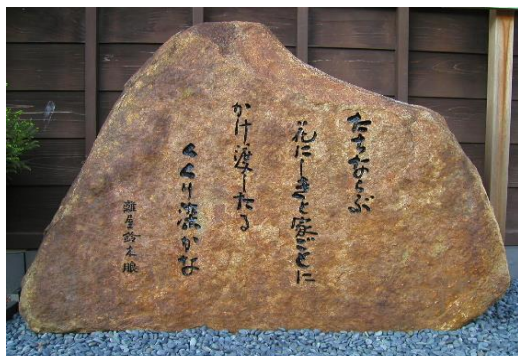 たちならぶ
花にしきを家ごとに
かけ渡したる
くくり染かな
離屋鈴木朖